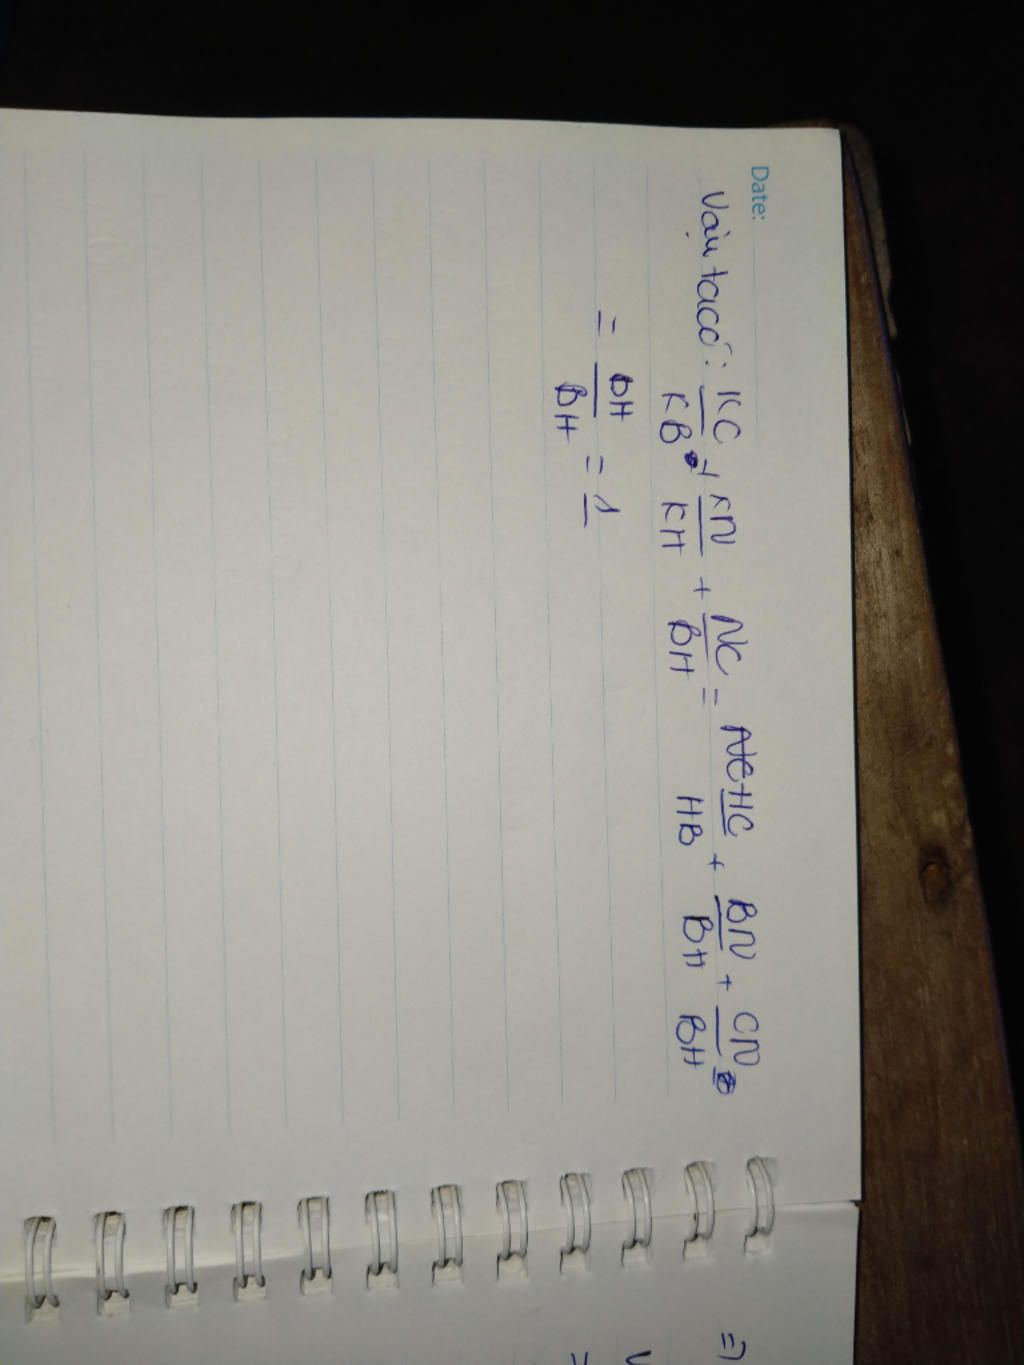 Date:
Vậy ta có: KC/KB + KN/KH + NC/BH = HC/HB + BN/BH + CN/BH
= BH/BH = 1
=)
=